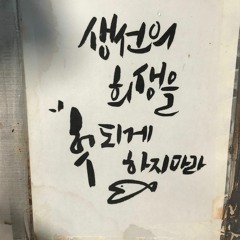 생선의
희생을
"헛되게
하지마라